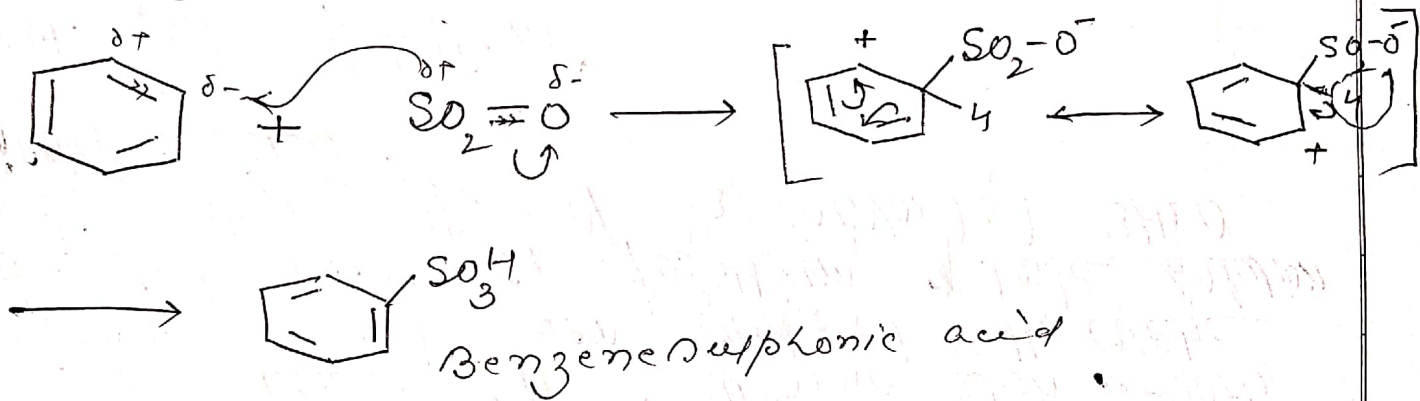 δ+ δ- + δ+ SO₂=O δ- ⟶ [ + SO₂-O⁻ H ⟷ SO₂-O⁻ H + ]
⟶ SO₃H
Benzenesulphonic acid.